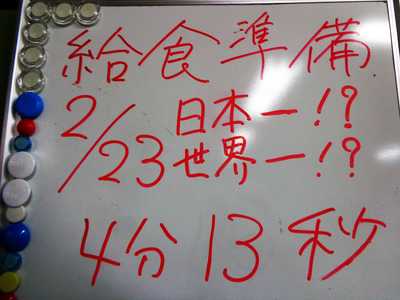 給食準備
2/23 日本一!?
世界一!?
4分13秒